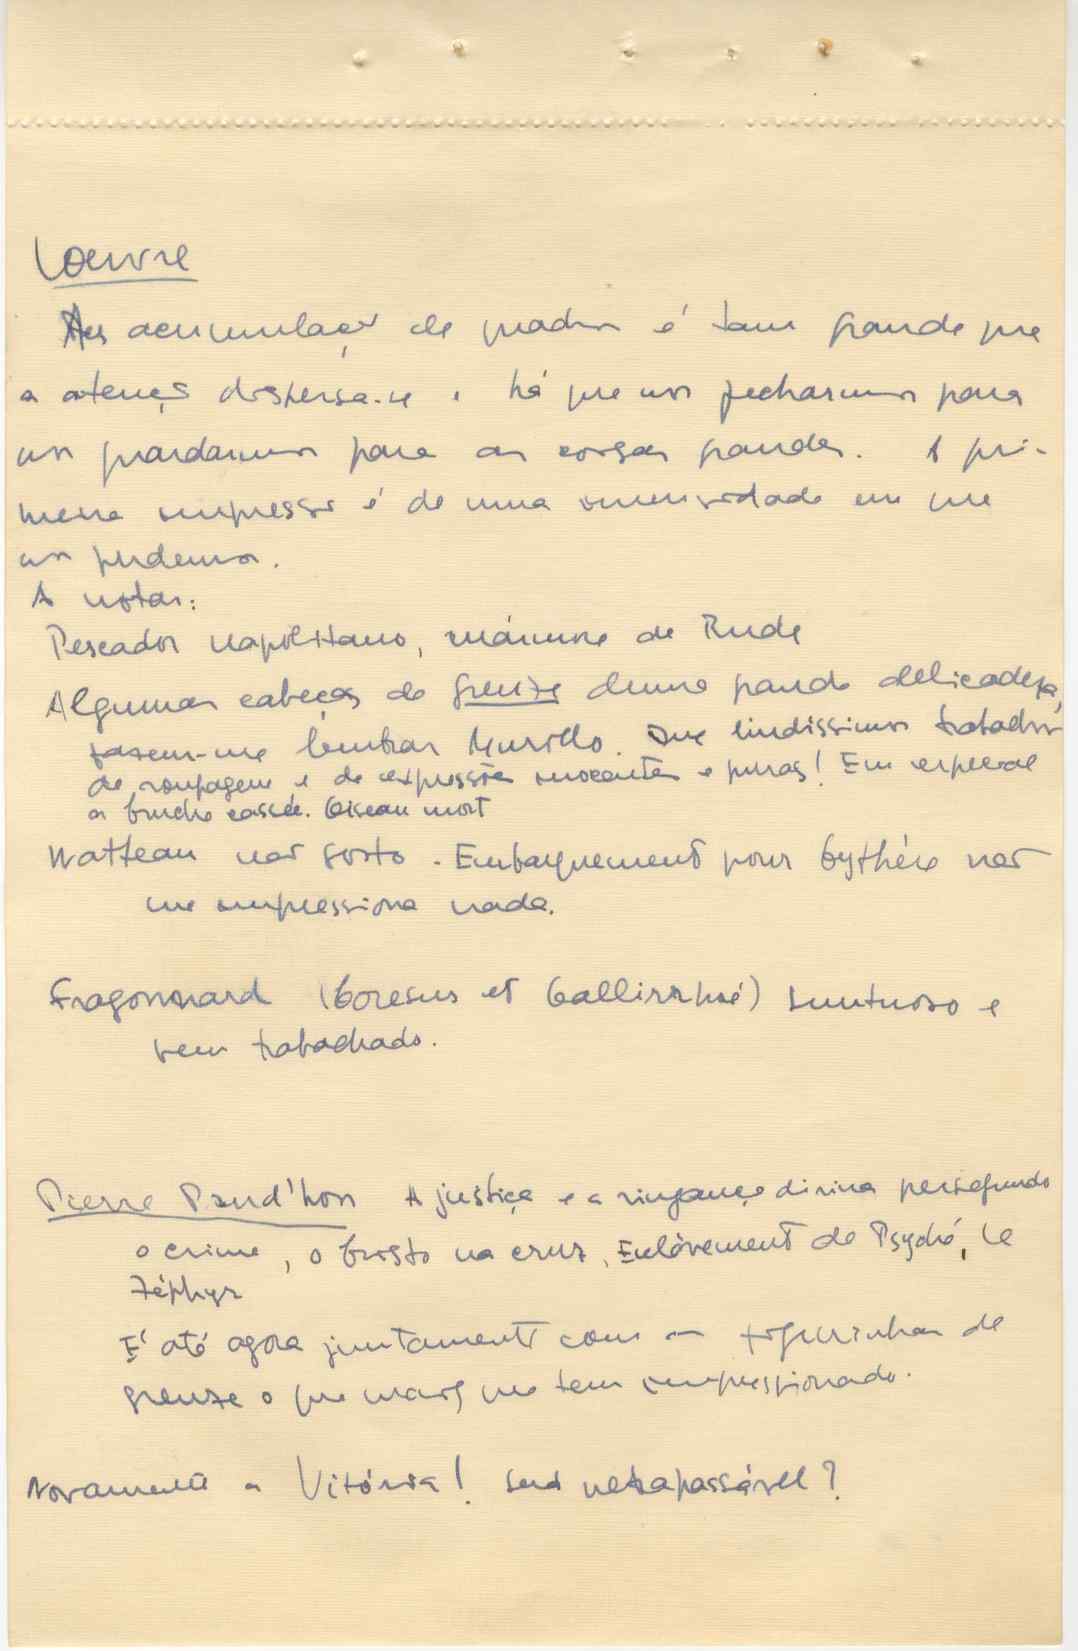 Louvre
A acumulação de quadros é tam grande que
a atenção dispersa-se e há que nos fecharmos para
nos guardarmos para as coisas grandes. A pri-
meira impressão é de uma imensidade em que
nos perdemos.
A notar:
Pescador napolitano, mármore de Rude
Algumas cabeças de Greuze duma grande delicadeza,
fazem-me lembrar Murillo. Que lindissimos trabalhos
de roupagem e de expressões inocentes e puras! Em especial
a cruche cassée. Oiseau mort
Watteau não gosto. Embarquement pour Cythére não
me impressiona nada.
Fragonnard (Coresus et Callirrhoé) Suntuoso e
bem trabalhado.
Pierre Prud'hon A justiça e a vingança divina perseguindo
o crime, o Cristo na cruz, Enlèvement de Psyché, Le
Zéphyr
E' até agora juntamente com as figurinhas de
Greuze o que mais me tem impressionado.
Novamente a Vitória! Será